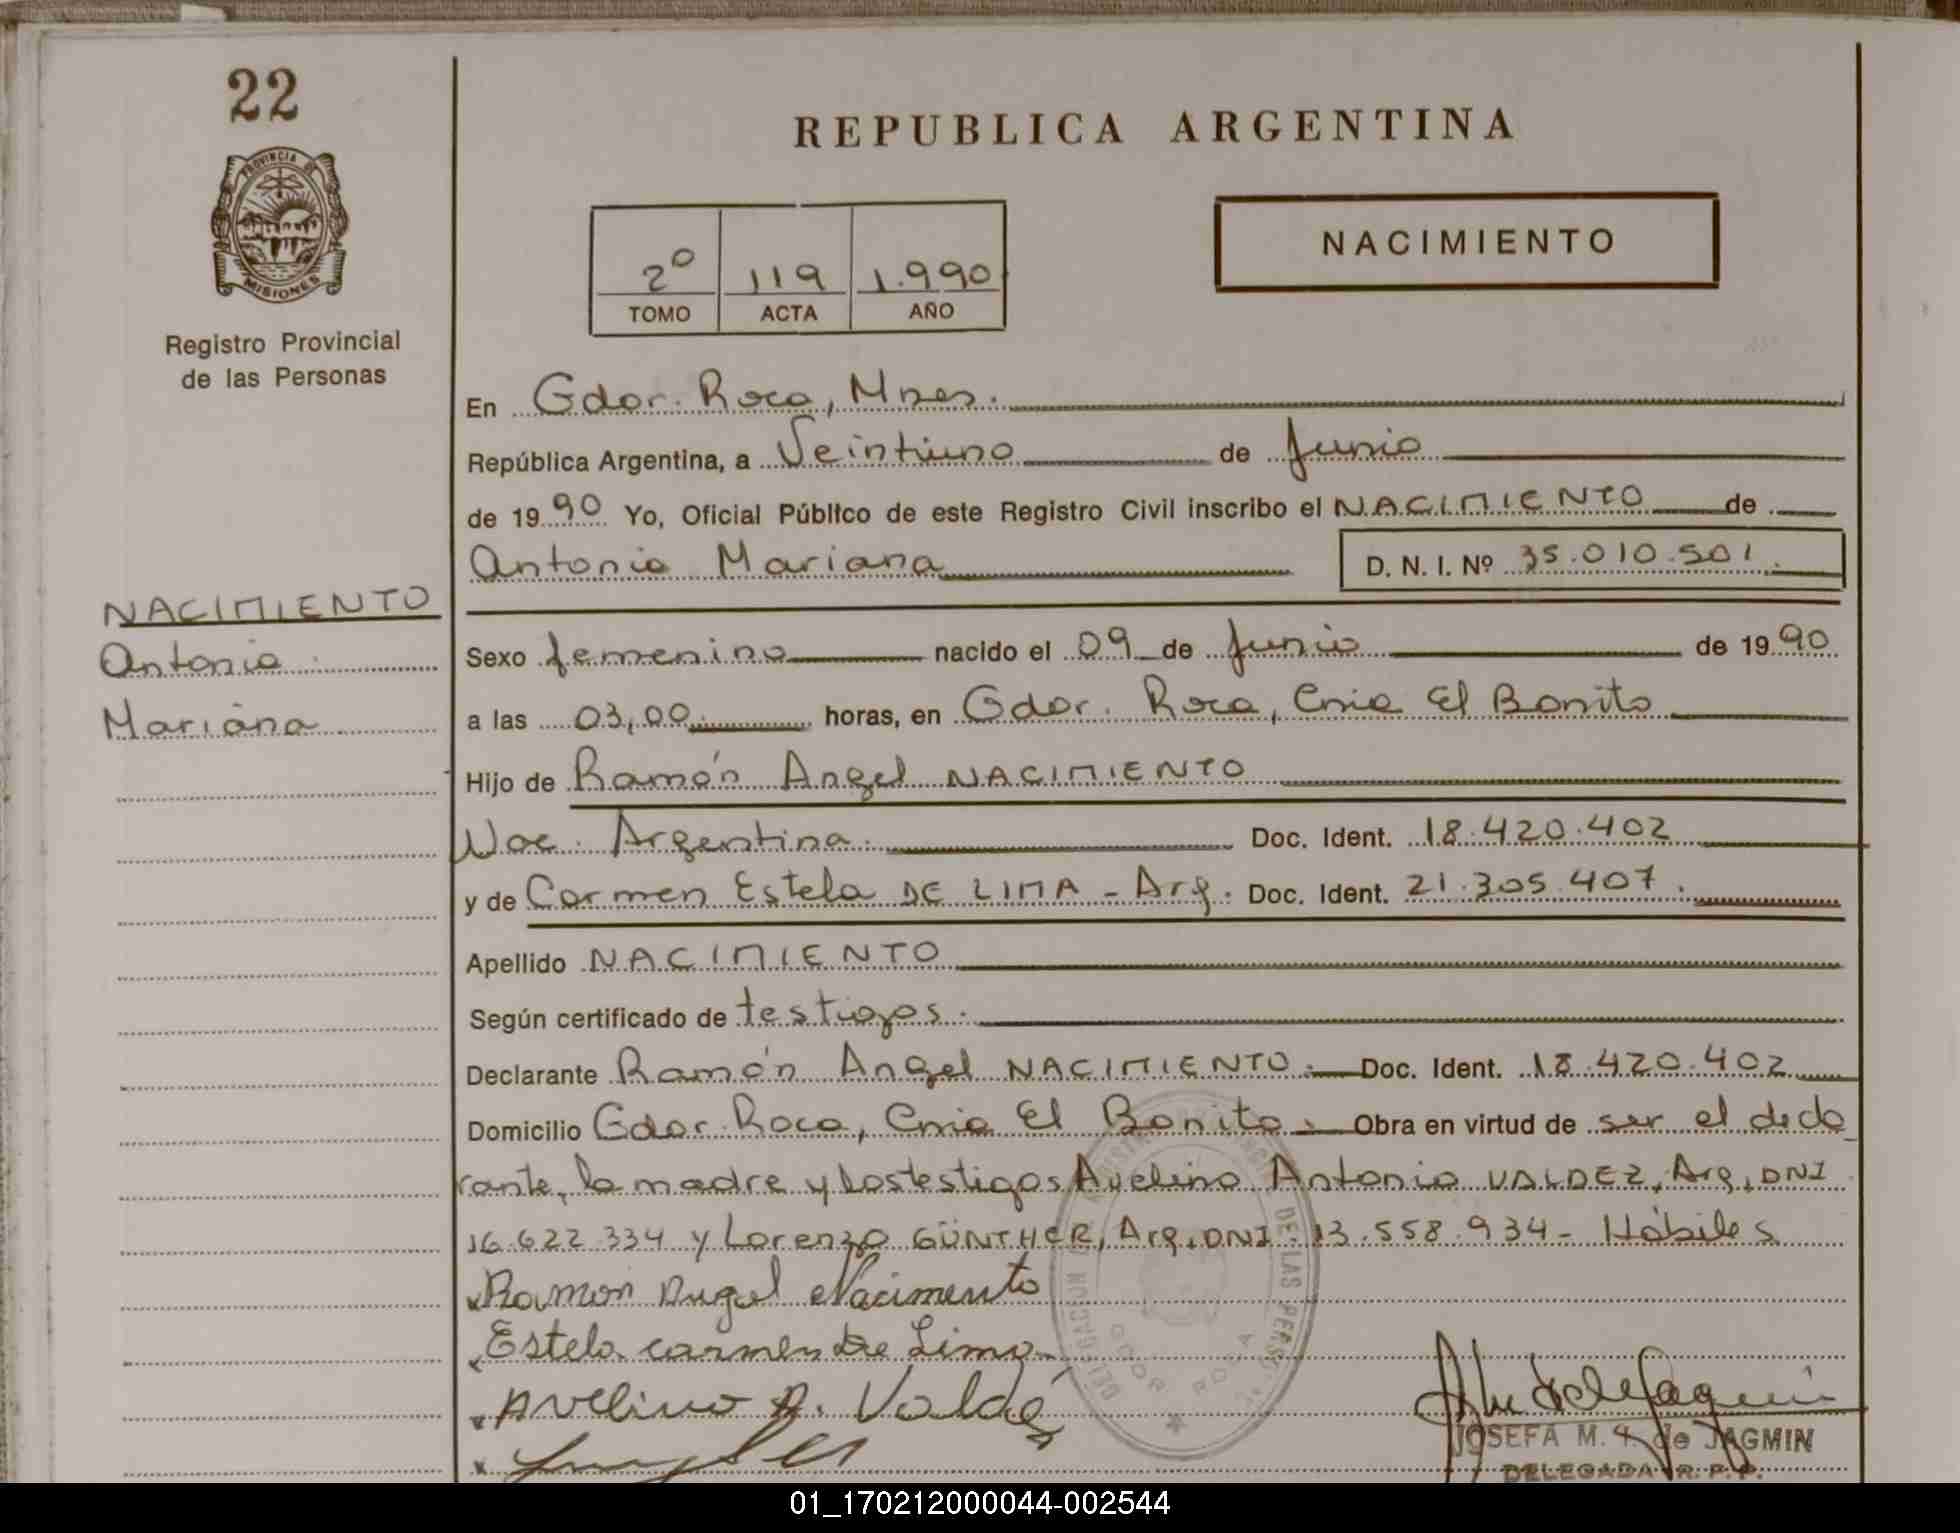 22
PROVINCIA DE
MISIONES
Registro Provincial
de las Personas
REPUBLICA ARGENTINA
2º 119 1.990
TOMO ACTA AÑO
NACIMIENTO
En Gdor. Roca, Mnes.
República Argentina, a Veintiuno de Junio
de 1990 Yo, Oficial Público de este Registro Civil inscribo el NACIMIENTO de
Antonia Mariana D. N. I. Nº 35.010.501.
NACIMIENTO
Antonia
Mariana
Sexo femenino nacido el 09 de Junio de 1990
a las 03,00 horas, en Gdor. Roca, Cnia El Bonito
Hijo de Ramón Angel NACIMIENTO
Nac. Argentina. Doc. Ident. 18.420.402
y de Carmen Estela DE LIMA - Arg. Doc. Ident. 21.305.407.
Apellido NACIMIENTO
Según certificado de testigos.
Declarante Ramón Angel NACIMIENTO. Doc. Ident. 18.420.402
Domicilio Gdor. Roca, Cnia El Bonito. Obra en virtud de ser el decla
rante, la madre y los testigos Avelino Antonio VALDEZ, Arg, DNI
16.622.334 y Lorenzo GÜNTHER, Arg, DNI. 13.558.934 - Hábiles
x Ramon Angel Nacimento
x Estela carmen De Lima
x Avelino A. Valdez
x
DELEGACION
DE LAS PERSONAS
GDOR ROCA
JOSEFA M. de JAGMIN
DELEGADA R. P. P.
01_170212000044-002544